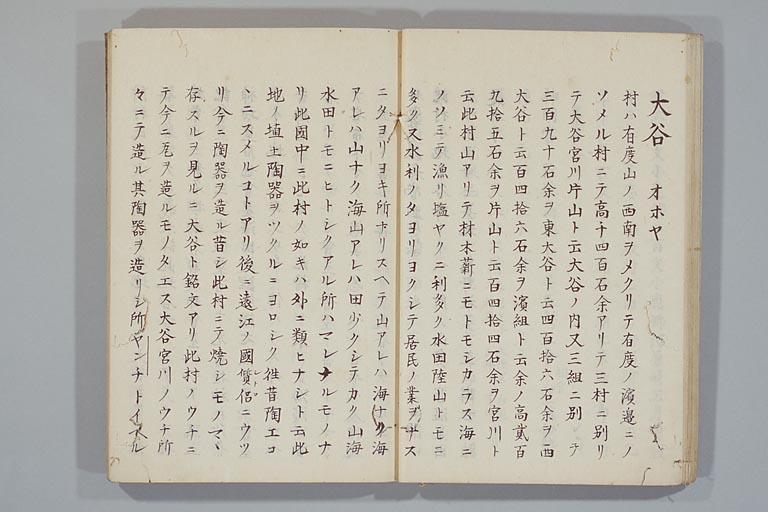 大谷 オホヤ
村ハ有度山ノ西南ヲメクリテ有度ノ濱邉ニノ
ソメル村ニテ高千四百石余アリテ三村ニ別リ
テ大谷宮川片山ト云大谷ノ内又三組ニ別 テ
三百九十石余ヲ東大谷ト云四百拾六石余ヲ西
大谷ト云百四拾六石余ヲ濱組ト云余ノ高貳百
九拾五石余ヲ片山ト云百四拾四石余ヲ宮川ト
云此村山アリテ材木薪ニモトモシカラス海ニ
ノソミテ漁リ塩ヤクニ利多ク水田陸山トモニ
多ク又水利ノタヨリヨクシテ居民ノ業ヲナス
ニタヨリヨキ所ナリスヘテ山アレハ海ナク海
アレハ山ナク海山アレハ田少クシテカク山海
水田トモニヒトシクアル所ハマレナルモノナ
リ此國中ニ此村ノ如キハ外ニ類ヒナシト云此
地ノ埴土陶器ヲツクルニヨロシク徃昔陶工コ
ヽニスメルコトアリ後ニ遠江ノ國質侶ニウツ
リ今ニ陶器ヲ造ル昔シ此村ニテ焼シモノマヽ
存スルヲ見ルニ大谷ト銘文アリ此村ノウチニ
テ今ニ瓦ヲ造ルモノタエス大谷宮川ノウチ所
々ニテ造ル其陶器ヲ造リシ所ヤンチトイヘル